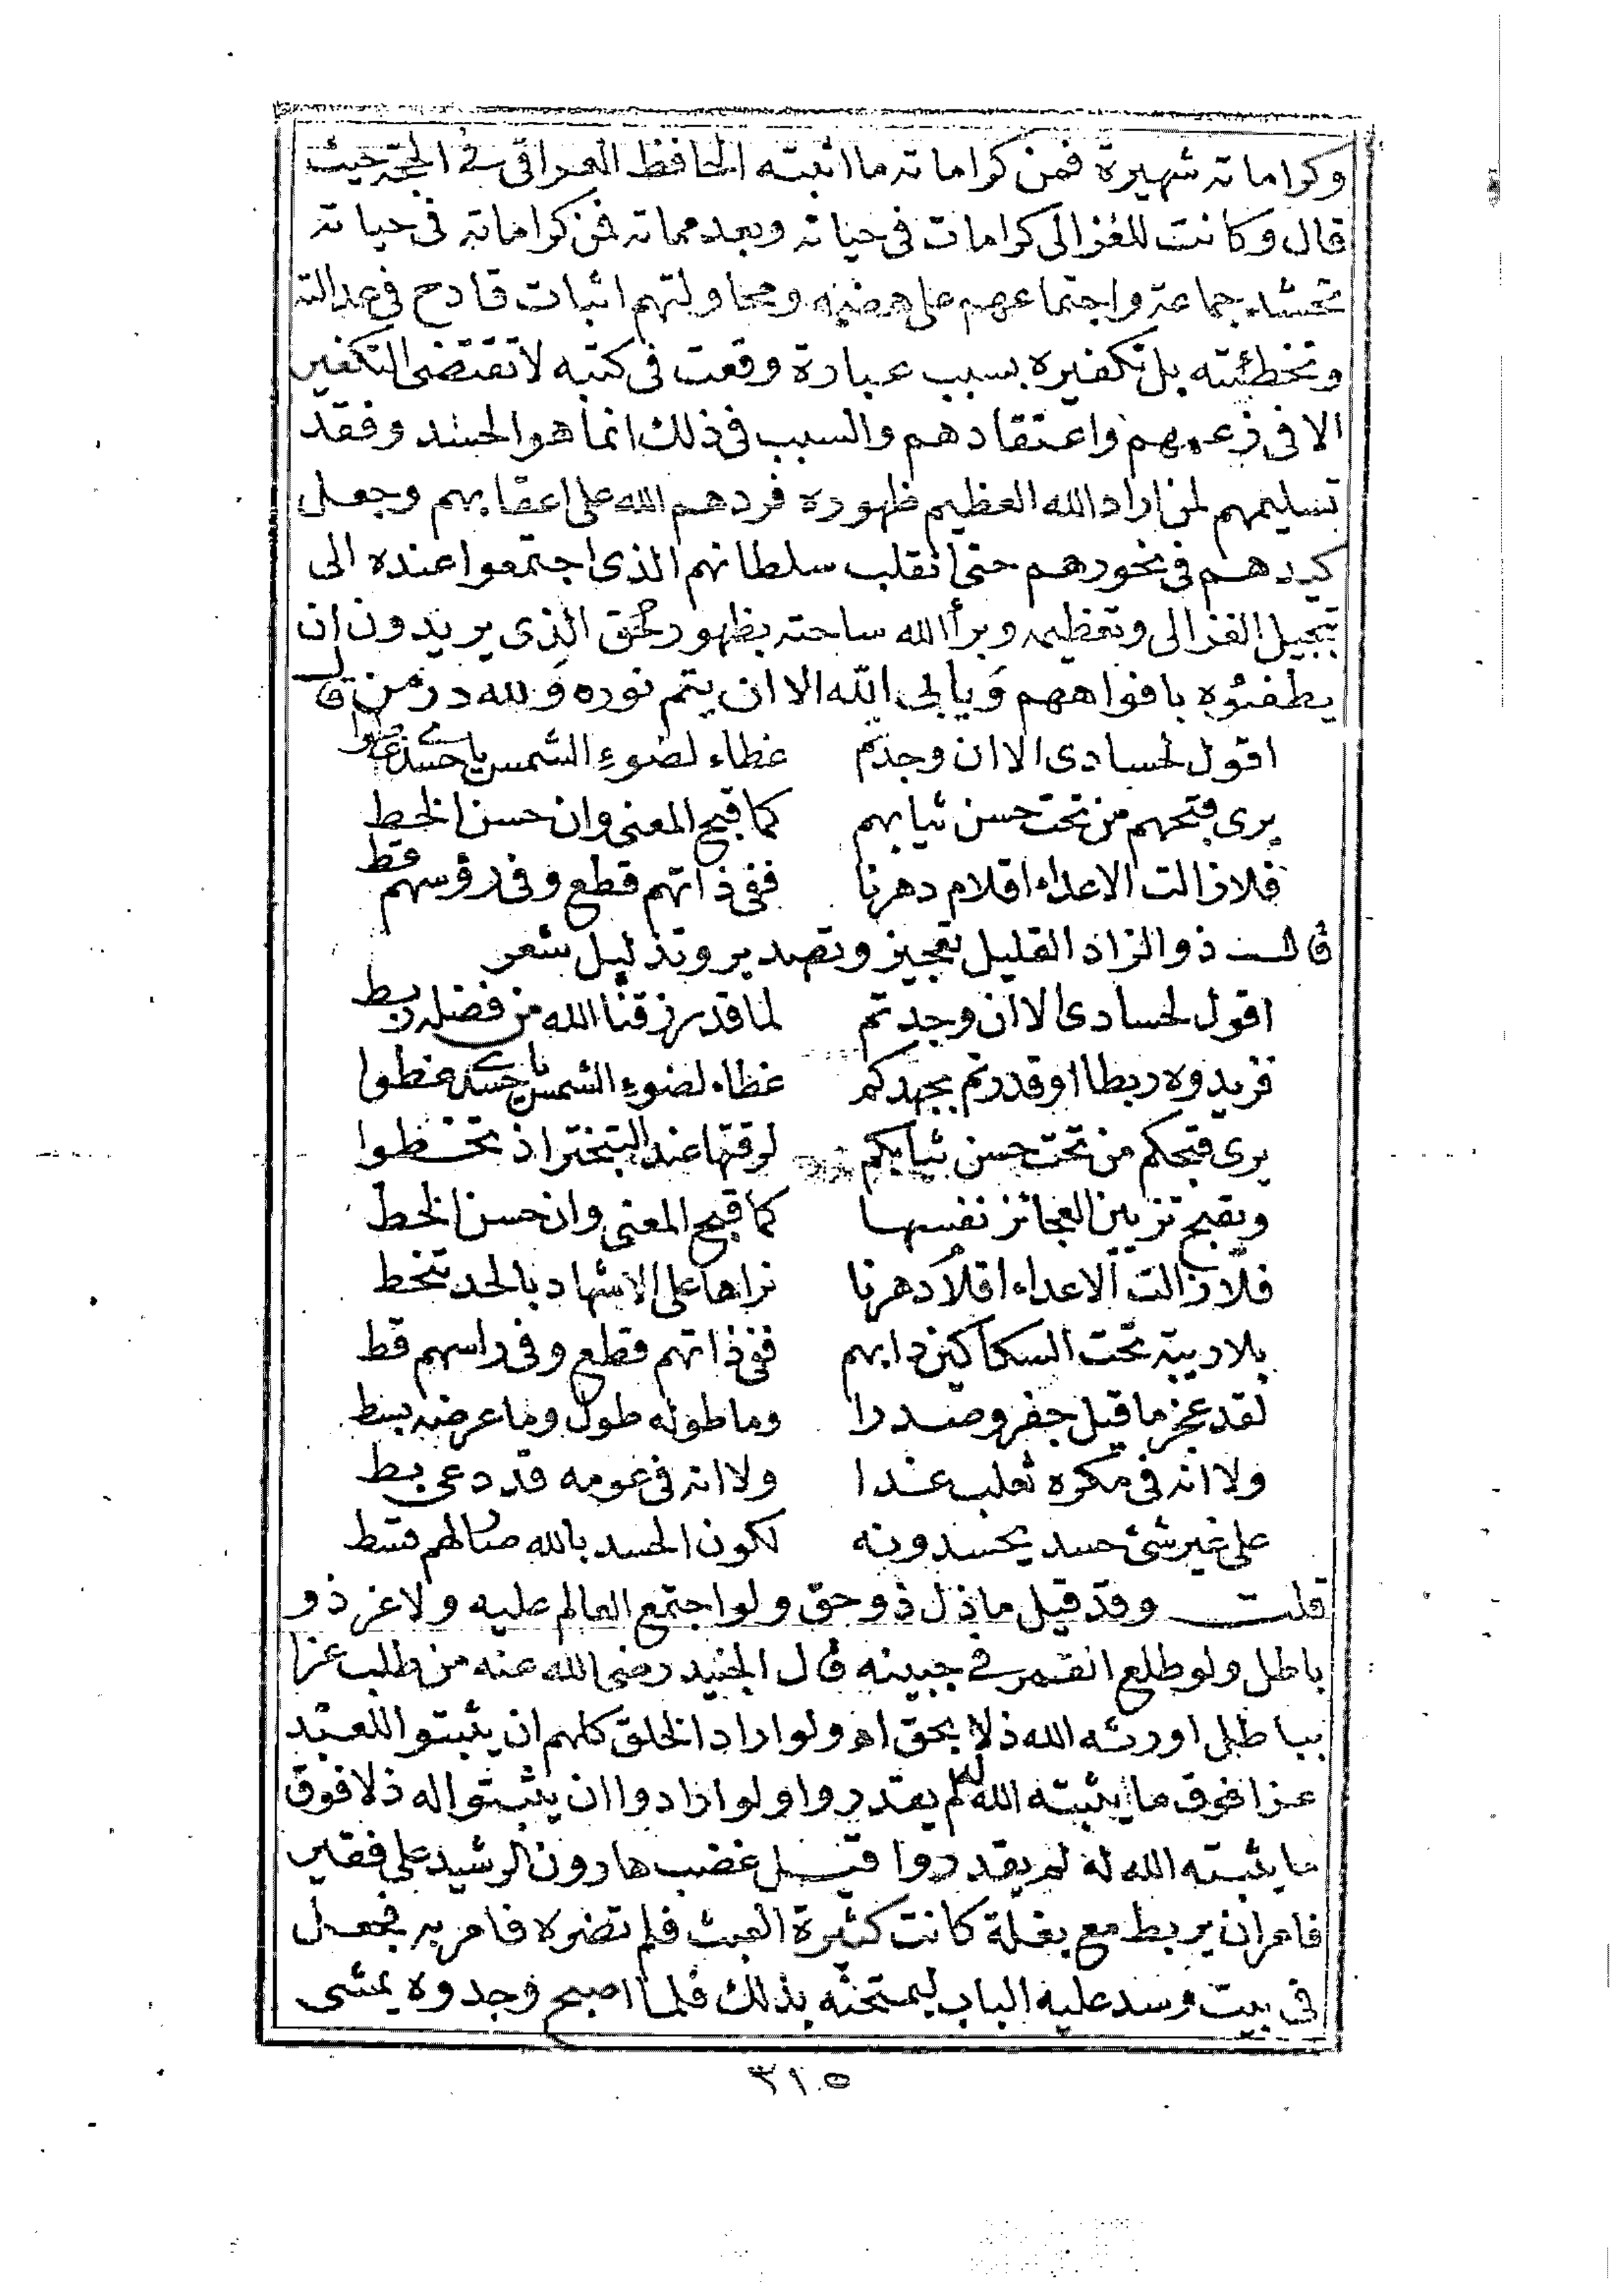 وكراماته شهيرة فمن كراماته ما اثبته الحافظ العراقى فى الحجة حيث
قال وكانت للغزالى كرامات فى حياته وبعد مماته فمن كراماته فى حياته
تحشد جماعة واجتماعهم على هضمه ومحاولتهم اثبات قادح فى عدالته
وتخطئته بل تكفيره بسبب عبارة وقعت فى كتبه لا تقتضى التكفير
الا فى زعمهم واعتقادهم والسبب فى ذلك انما هو الحسد وفقد
تسليمهم لمن اراد الله العظيم ظهوره فردهم الله على اعقابهم وجعل
كيدهم فى نحورهم حتى انقلب سلطانهم الذى اجتمعوا عنده الى
تبجيل الغزالى وتعظيمه وبرأ الله ساحته بظهور الحق الذى يريدون ان
يطفئوه بافواههم ويابى الله الا ان يتم نوره ولله در من قال
اقول لحسادى الا ان وجدتم غطاء لضوء الشمس ياحسدى غطوا
يرى قبحهم من تحت حسن ثيابهم كما قبح المعنى وان حسن الخط
فلا زالت الاعداء اقلام دهرنا ففى ذاتهم قطع وفى رؤسهم قط
قالـــ ذو الزاد القليل تعجيز وتصدير وتذليل شعر
اقول لحسادى الا ان وجدتم لما قد رزقنا الله من فضله ربط
فزيدوه ربطا او قدرتم بجهدكم غطاء لضوء الشمس ياحسدى غطوا
يرى قبحكم من تحت حسن ثيابكم لرقتها عند التبختر اذ تخطوا
ويقبح تزيين العجائز نفسها كما قبح المعنى وان حسن الخط
فلا زالت الاعداء اقلا دهرنا نراها على الاشهاد بالحد تنخط
بلا ريبة تحت السكاكين دابهم ففى ذاتهم قطع وفى راسهم قط
لقد عجز ما قيل جفر وصدرا وما طوله طول وما عرضه بسط
ولا انه فى مكره ثعلب غدا ولا انه فى عومه قد دعى بط
على غير شئ حسد يحسدونه لكون الحسد بالله ما لهم قسط
قلت وقد قيل ما ذل ذو حق ولو اجتمع العالم عليه ولا عز ذو
باطل ولو طلع القمر فى جبينه قال الجنيد رضى الله عنه من طلب عزا
بباطل اورثه الله ذلا بحق اهـ ولو اراد الخلق كلهم ان يثبتوا للعبد
عزا فوق ما يثبته الله له لم يقدروا ولو ارادوا ان يثبتوا له ذلا فوق
ما يثبته الله له لم يقدروا قيـل غضب هارون الرشيد على فقير
فامر ان يربط مع بغلة كانت كثيرة العبث فلم تضره فامر به فجعل
فى بيت وسد عليه الباب ليمتحنه بذلك فلما اصبح وجدوه يمشى
٣١٥